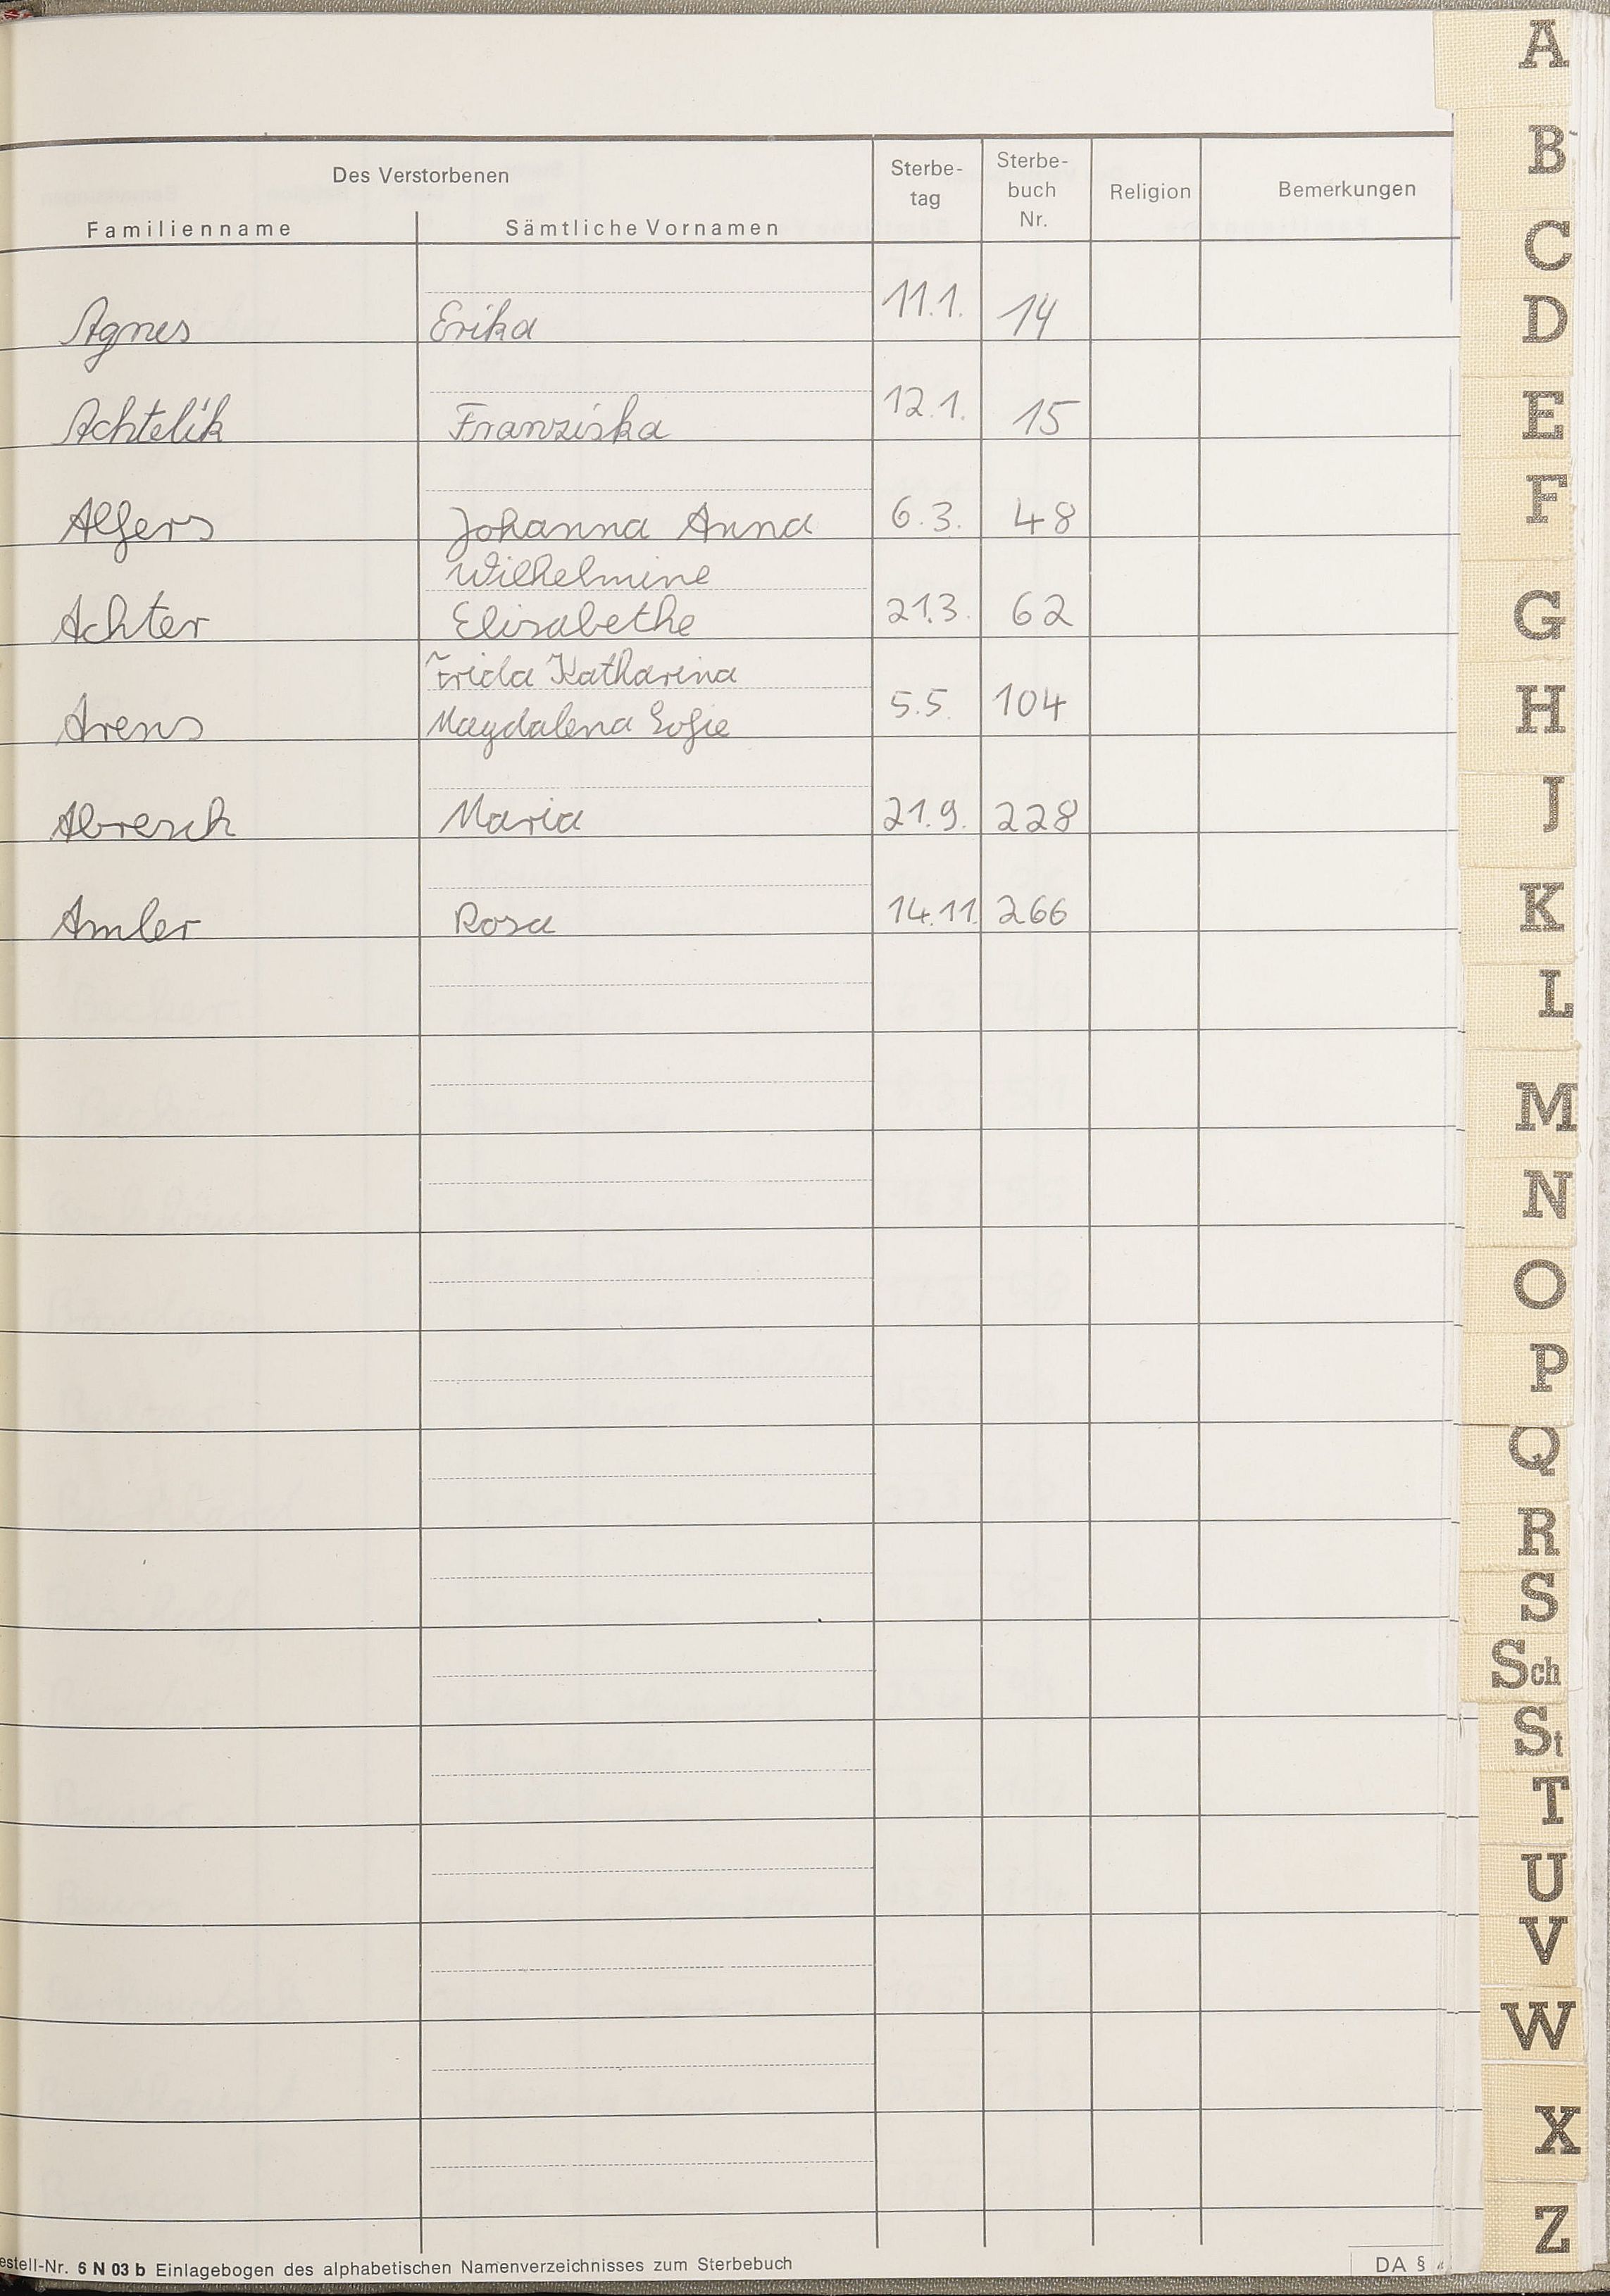 Des Verstorbenen
Familienname Sämtliche Vornamen Sterbe-
tag Sterbe-
buch
Nr. Religion Bemerkungen
Agnes Erika 11.1. 14
Achtelik Franziska 12.1. 15
Alfers Johanna Anna 6.3. 48
Wilhelmine
Achter Elisabethe 21.3. 62
Frida Katharina
Arens Magdalena Sofie 5.5. 104
Abresch Maria 21.9. 228
Amler Rosa 14.11. 266
estell-Nr. 6 N 03 b Einlagebogen des alphabetischen Namenverzeichnisses zum Sterbebuch
DA §
A
B
C
D
E
F
G
H
J
K
L
M
N
O
P
Q
R
S
Sch
St
T
U
V
W
X
Z